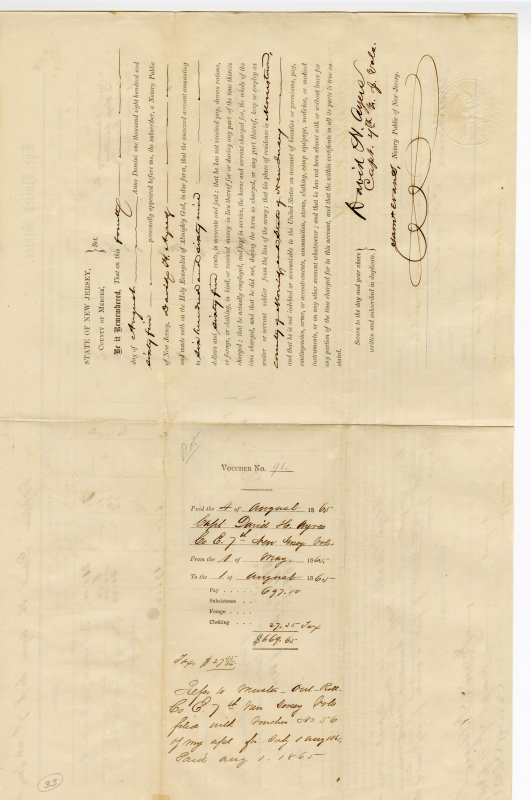 STATE OF NEW JERSEY,
COUNTY OF MERCER, } Sct.
Be it Remembered, That on this fourth
day of August Anno Domini one thousand eight hundred and
sixty five personally appeared before me, the subscriber, a Notary Public
of New Jersey, David H. Ayres
and made oath on the Holy Evangelist of Almighty God, in due form, that the annexed account amounting
to six hundred and sixty nine
dollars and sixty five cents, is accurate and just; that he has not received pay, drawn rations,
or forage, or clothing, in kind, or received money in lieu thereof for or during any part of the time therein
charged; that he actually employed, and kept in service, the horse and servant charged, for the whole of the
time charged, and that he did not, during the term so charged, or any part thereof, keep or employ as
waiter or servant a soldier from the line of the army; that his place of residence is Morristown,
county of Morris and State of New Jersey
and that he is not indebted or accountable to the United States on account of bounties or premiums, pay,
contingencies, arms, or accoutrements, ammunition, stores, clothing, camp equipage, medicine, or medical
instruments, or on any other account whatsoever; and that he has not been absent with or without leave for
any portion of the time charged for in this account, and that the within certificate in all its parts is true as
stated.
Sworn to the day and year above
written and subscribed in duplicate.
David H. Ayres
Capt. 7th N. J. Vols.
Saml Evans, Notary Public of New Jersey.
VOUCHER No. 41.
Paid the 4 of August 1865
Capt David H. Ayres
Co E. 7th New Jersey Vols
From the 1 of May 1865.
To the 1 of August 1865
Pay . . . . . 697.00
Subsistence . .
Forage . . . .
Clothing . . . 27.35 Tax
$669.65
Tax $27 35/100
Refer to Muster-Out-Roll
Co E 7th New Jersey Vols
filed with Voucher No 56
of my for July & Aug
Paid Aug 1. 1865
33